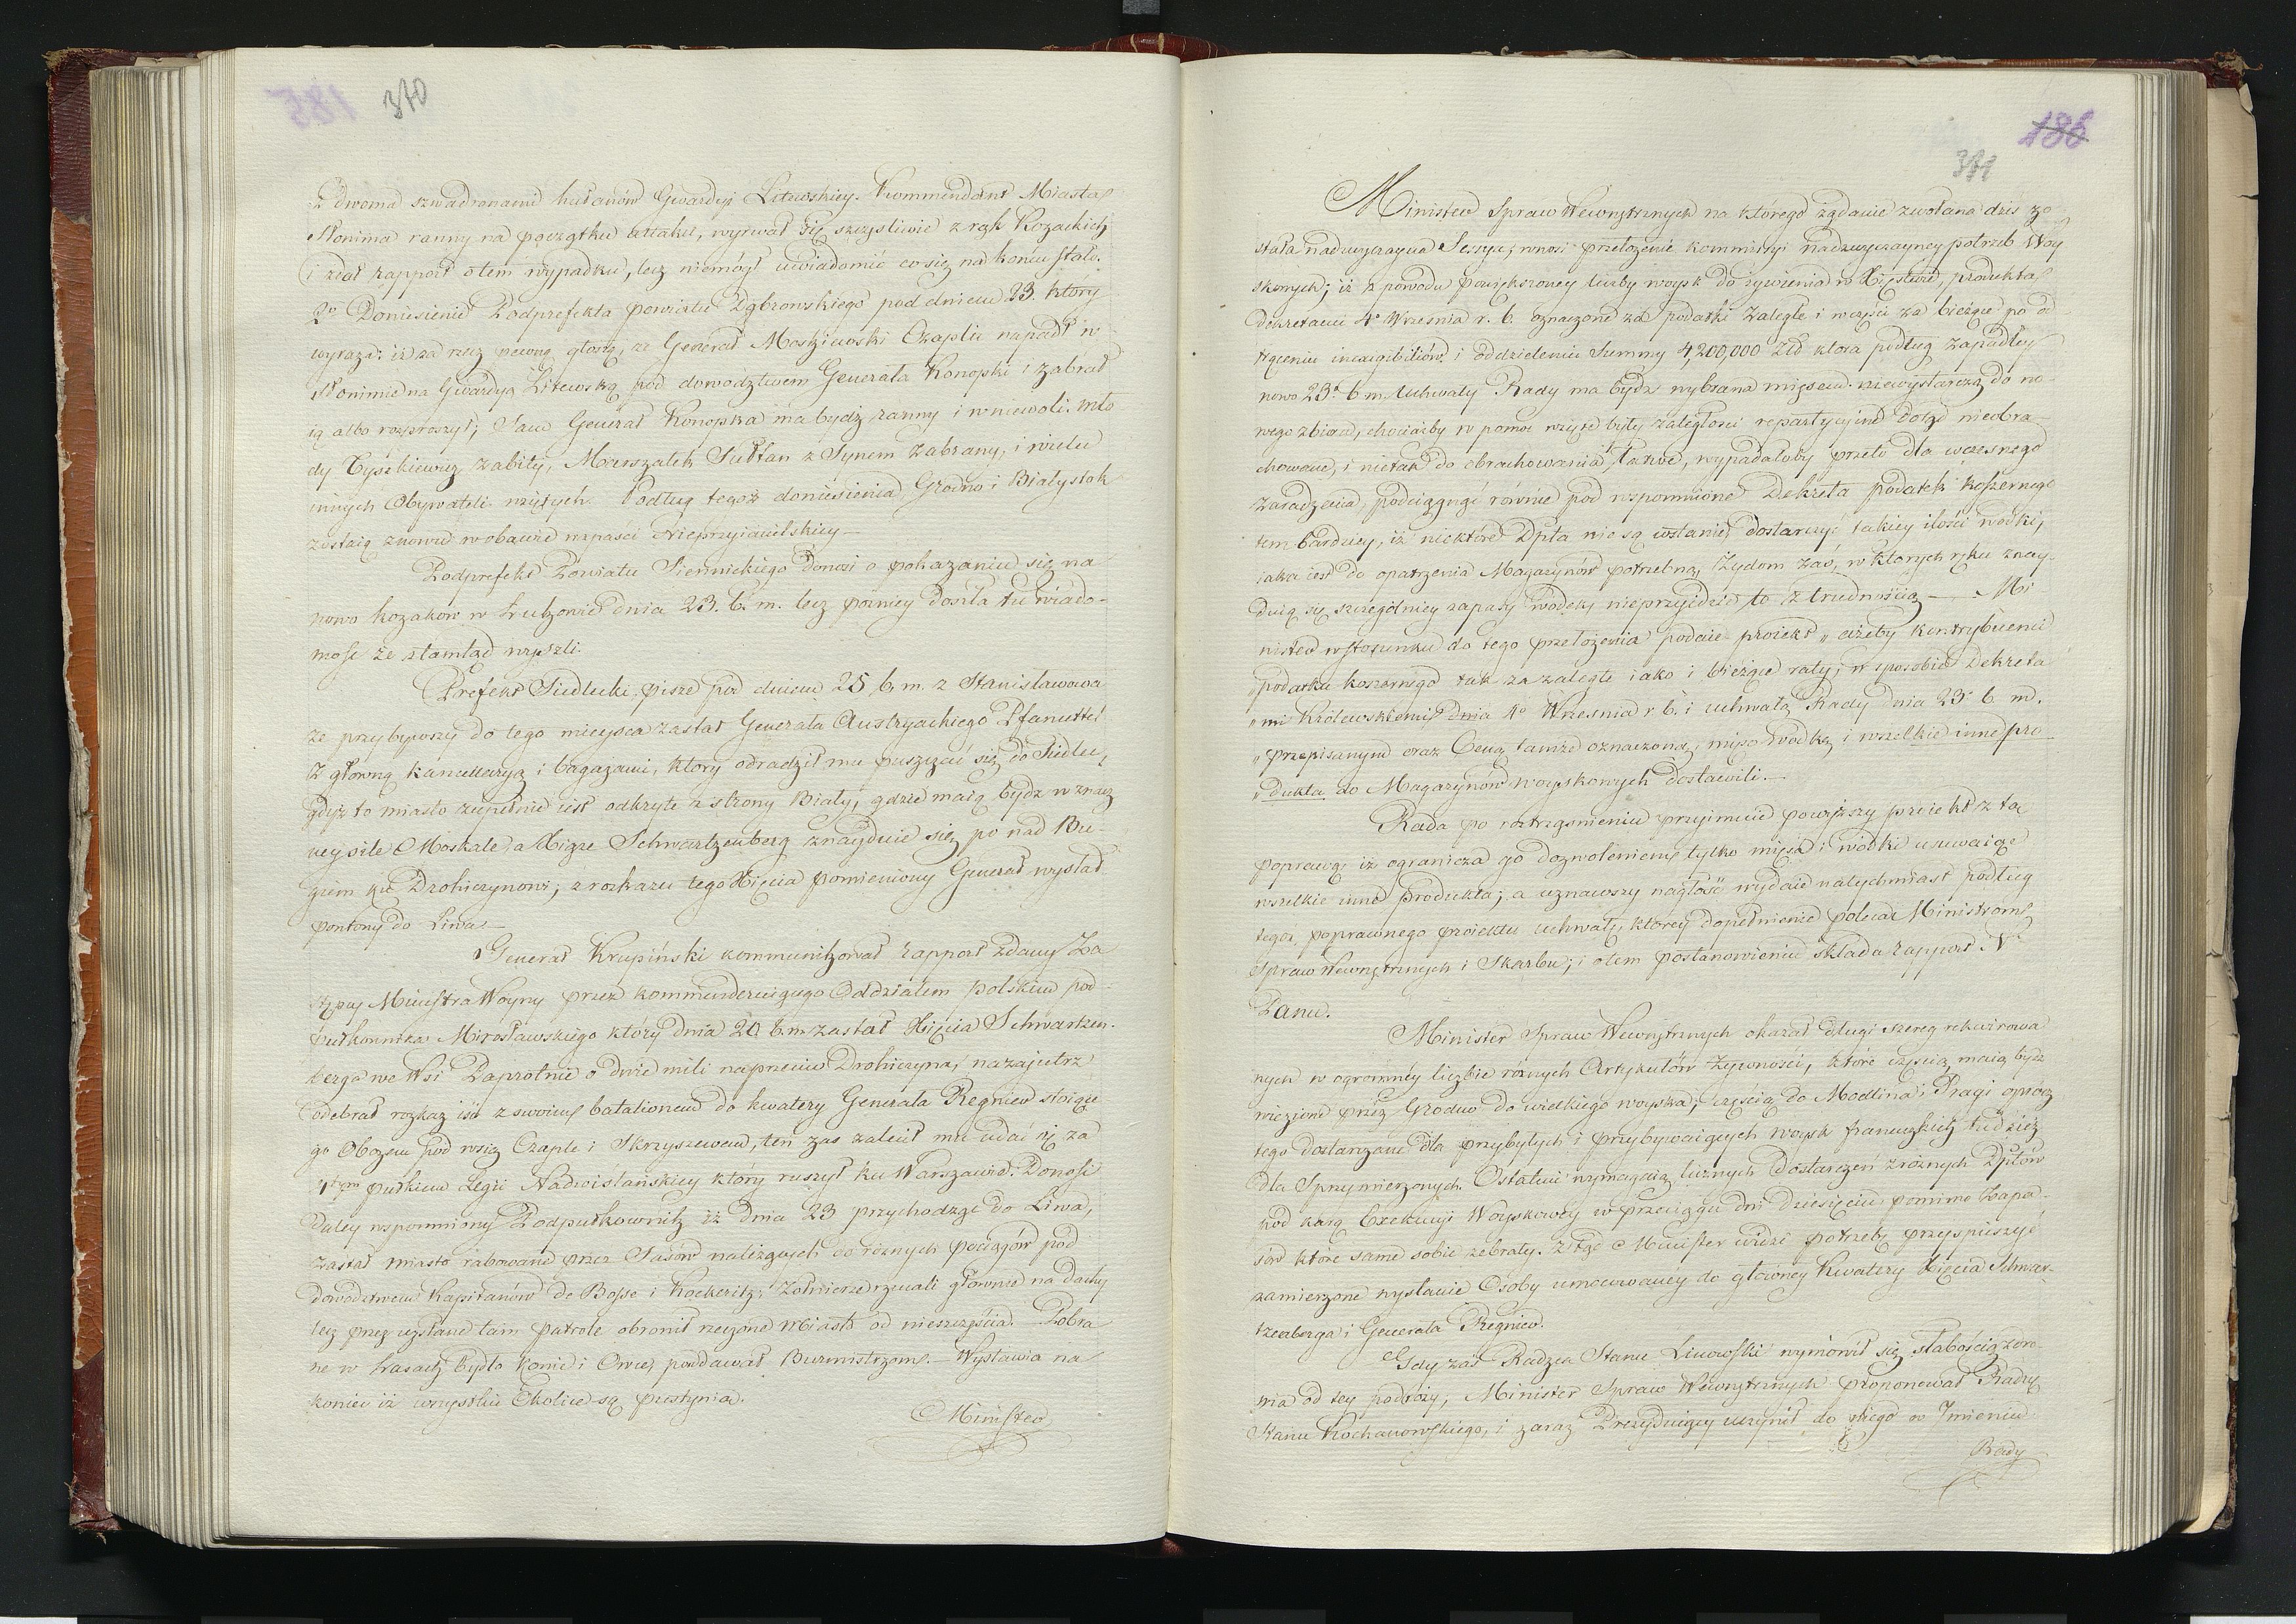 370
z dwoma szwadronami hułanów Gwardyi Litewskiey. Kommendant Miasta
Słonima ranny na początku attaku, wyrwał się szczęśliwie z rąk Kozackich
i zdał rapport o tem wypadku, lecz niemógł uwiadomić co się na końcu stało.
2o Doniesienie Podprefekta powiatu Dąbrowskiego pod dniem 23. który
wyraża: iż za rzecz pewną głoszą, że Generał Moskiewski Czaplic napadł w
Słonimie na Gwardyą Litewską pod dowodztwem Generała Konopki i zabrał
ią albo rozproszył; Sam Generał Konopka ma bydź ranny i w niewoli. Mło
dy Tyszkiewicz zabity, Marszałek Sułtan z Synem zabrany, i wielu
innych Obywateli wziętych. Podług tegoż doniesienia Grodno i Białystok
zostaią znowu w obawie napaści Nieprzyiacielskiey —
Podprefekt Powiatu Siennickiego donosi o pokazaniu się na
nowo kozaków w dnia 23. b. m. lecz poźniey doszła tu wiado-
mość że ztamtąd wyszli.
Prefekt Siedlecki pisze pod dniem 25 b. m. z Stanisławowa
że przybywszy do tego mieysca zastał Generała Austryackiego
z główną kancellaryą i bagażami, który odradził mu puszczać się do Siedlec,
gdyż to miasto zupełnie iest odkryte z strony Biały, gdzie maią bydź w znacz
ney sile Moskale, a Xiąże Schwartzenberg znayduie się po nad Bu-
giem ku Drohiczynowi; z rozkazu tego Xięcia pomieniony Generał wysłał
pontony do Liwa —
Generał Krupiński kommunikował rapport zdany Za
stępcy Ministra Woyny przez kommenderuiącego Oddziałem polskim pod-
pułkownika Mirosławskiego który dnia 20 b. m. zastał Xięcia Schwartzen-
berga we Wsi Paprotnie o dwie mili naprzeciw Drohiczyna, nazajutrz
odebrał rozkaz iść z swoim batalionem do kwatery Generała Regnier stoiące
go Obozem pod wsią Czaple i Skrzyszewem, ten zaś zalecił mu udać się za
4tym pułkiem Legii Nadwiślańskiey który ruszył ku Warszawie. Donosi
daley wspomniony Podpułkownik iż dnia 23 przychodząc do Liwa,
zastał miasto rabowane przez Sasów należących do różnych pociągów pod
dowodztwem Kapitanów de Bosse i Kockeritz; Żołnierze rzucali głownie na dachy
lecz przez wysłane tam patrole obronił rzeczone Miasto od nieszczęścia. Pobra
ne w Lasach bydło konie i Owce pooddawał Burmistrzom. — Wystawia na
koniec iż wszystkie Okolice są pustynią.
Minister
186
371
Minister Spraw Wewnętrznych na którego żądanie zwołana dziś zo
stała nadzwyczayna Sessya, wnosi przełożenie kommissyi nadzwyczayney potrzeb Woy
skowych; iż z powodu powiększoney liczby woysk do żywienia w Xięstwie, produkta
dekretami 4o Września r. b. oznaczone za podatki zaległe i wczęści za bieżące po od
trąceniu inexigibiliów i oddzieleniu Summy 4,200,000 Złp która podług zapadłey
nowo 23o b. m. Uchwały Rady ma bydź wybrana mięsem, niewystarczą do no-
wego zbioru, chociażby w pomoc wzięte były zaległości repartycyine dotąd nieobra
chowane, i nietak do obrachowania łatwe, wypadałoby przeto dla wczesnego
zaradzenia, podciągnąć rownie pod wspomnione Dekreta podatek koszernego
tem bardziey, iż niektóre Dpta nie są wstanie dostarczyć takiey ilości wódki,
iaka iest do opatrzenia Magazynów potrzebna, Żydom zaś, w ktorych ręku znay-
duią się szczególniey zapasy wódek, nieprzyidzie to z trudnością — Mi
nister w stosunku do tego przełożenia podaie proiekt „ ażeby kontrybuenci
„podatku koszernego tak za zaległe iako i bieżące raty, w sposobie Dekreta
„mi Królewskiemi dnia 4o Września r. b. i uchwałą Rady dnia 23o b. m.
„przepisanym oraz Ceną tamże oznaczoną, mięso wódkę, i wszelkie inne pro
„dukta do Magazynów woyskowych dostawili. —
Rada po roztrząsnieniu przyimuie powyższy proiekt z tą
poprawą, iż ogranicza go dozwoleniem tylko mięsa i wódki usuwaiąc
wszelkie inne produkta; a uznawszy nagłość wydaie natychmiast podług
tegoż poprawnego proiektu uchwałę, którey dopełnienie poleca Ministrom
Spraw Wewnętrznych i Skarbu; i otem postanowieniu składa rapport N.
Panu.
Minister Spraw Wewnętrznych okazał długi szereg rekwirowa
nych w ogromney liczbie róznych Artykułów Żywności, które częścią maią bydź
wiezione przez Grodno do wielkiego woyska; częścią do Modlina i Pragi oprócz
tego dostarczane dla przybyłych i przybywaiących woysk francuzkich tudzież
dla Sprzymierzonych. Ostatni wymagaią licznych dostarczeń z różnych Dptów
pod karą Exekucyi Woyskowey w przeciągu dni dziesięciu pomimo Zapa-
sów które same sobie zebrały. Ztąd Minister widzi potrzebę przyspieszyć
zamierzone wysłanie Osoby umocowaney do główney Kwatery Xięcia Schwar-
tzenberga i Generała Regnier.
Gdy zaś Radzca Stanu Linowski wymówił się słabością zdro-
wia od tey podróży, Minister Spraw Wewnętrznych proponował Radzcę
Stanu Kochanowskiego, i zaraz Prezyduiący uczynił do niego w Imieniu
Rady